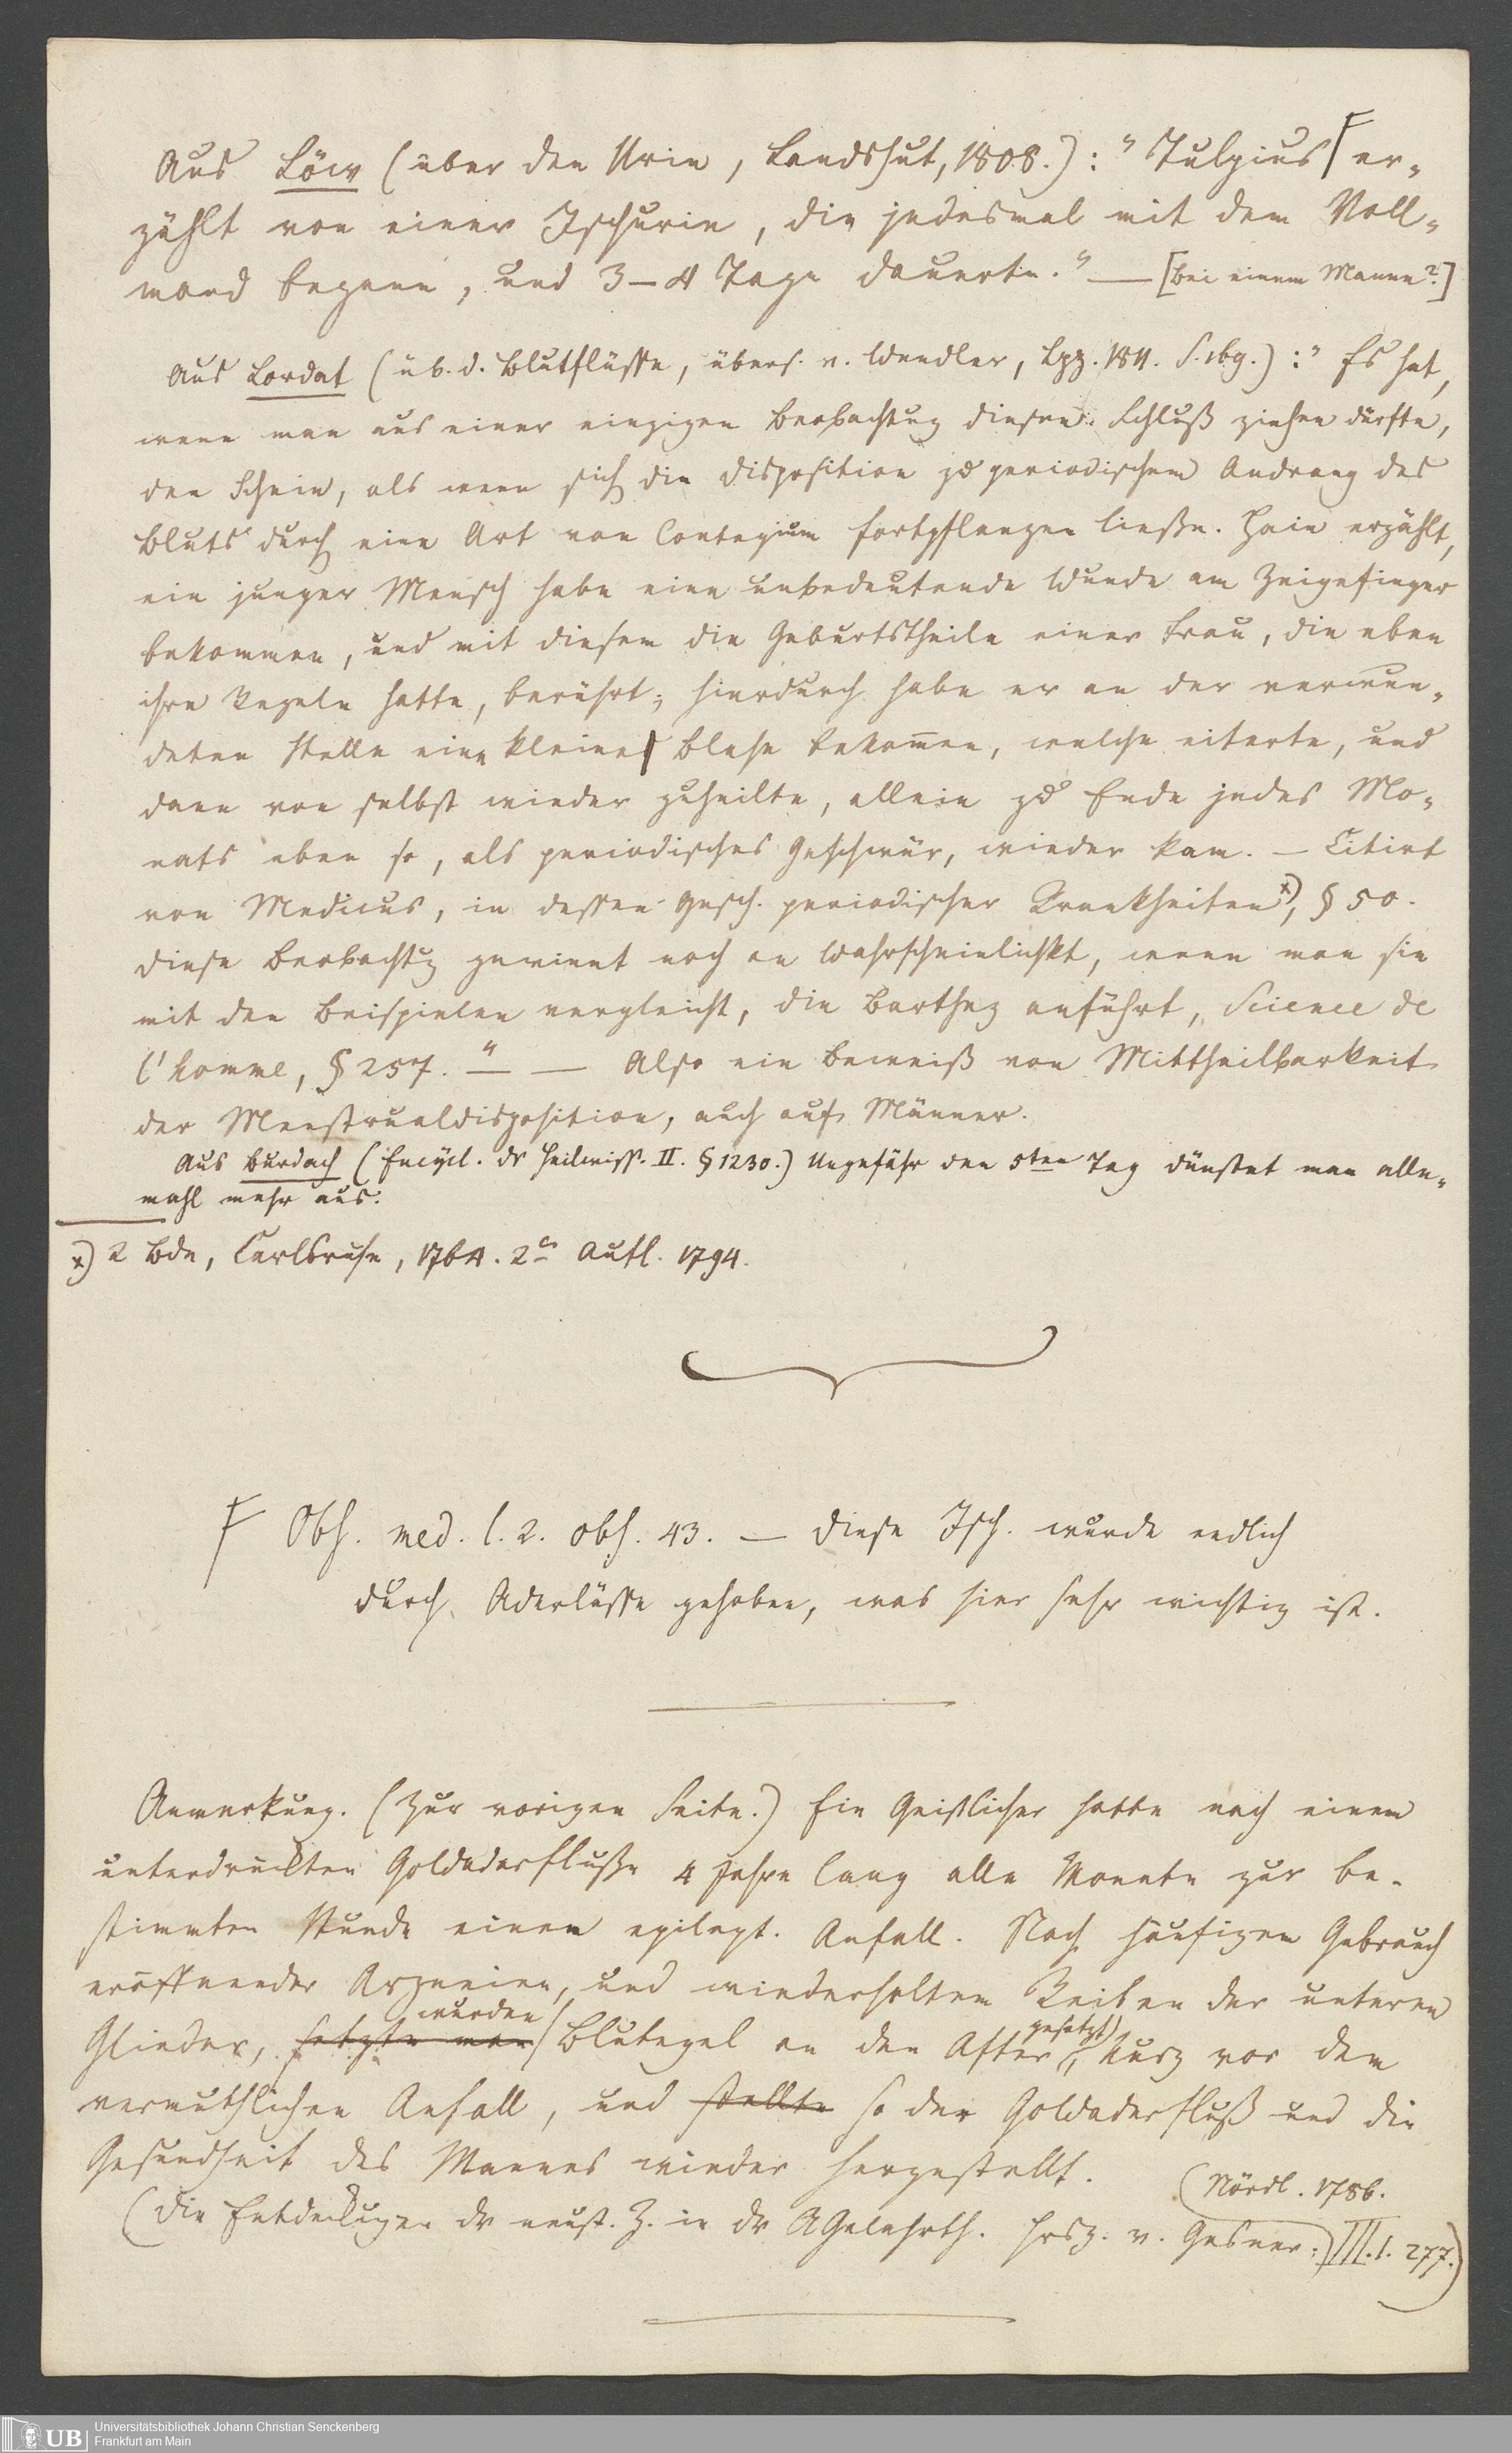 Aus Löw (über den Urin, Landshut, 1808.): "Tulpius er-
zählt von einer Ischurie, die jedesmal mit dem Voll-
mond begann, und 3–4 Tage dauerte." — [bei einem Manne?]
Aus Lordat (üb. d. Blutflüsse, übers. v. Wendler, Lpz. 1811. S. 169.): "Es hat,
wenn man aus einer einzigen Beobachtung diesen Schluß ziehen dürfte,
den Schein, als wenn sich die Disposition zu periodischem Andrang des
Bluts durch eine Art von Contagium fortpflanzen ließe. Hain erzählt,
ein junger Mensch habe eine unbedeutende Wunde am Zeigefinger
bekommen, und mit diesem die Geburtstheile einer Frau, die eben
ihre Regeln hatte, berührt; hierdurch habe er an der verwun-
deten Stelle eine kleine Blase bekommen, welche eiterte, und
dann von selbst wieder zuheilte, allein zu Ende jedes Mo-
nats eben so, als periodisches Geschwür, wieder kam. – Citirt
von Medicus, in dessen Gesch. periodischer Krankheiten *), § 50.
Diese Beobachtg gewinnt noch an Wahrscheinlichkt, wenn man sie
mit den Beispielen vergleicht, die Barthez anführt, Science de
l'homme, § 257." — — Also ein Beweiß von Mittheilbarkeit
der Menstrualdisposition, auch auf Männer.
Aus Burdach (Encycl. dr Heilwiss. II. § 1230.) Ungefähr den 5ten Tag dünstet man alle-
mahl mehr aus.
*) 2 Bde, Carlsruhe, 1764. 2e Aufl. 1794.
Obs. med. l. 2. obs. 43. — Diese Isch. wurde endlich
durch Aderlässe gehoben, was hier sehr wichtig ist.
Anmerkung. (Zur vorigen Seite.) Ein Geistlicher hatte nach einem
unterdrückten Goldaderflusse 4 Jahre lang alle Monate zur be-
stimmten Stunde einen epilept. Anfall. Nach häufigem Gebrauch
eröffnender Arzneien, und wiederholtem Reiben der unteren
Glieder, setzte man wurden Blutegel an den After gesetzt, kurz vor dem
vermuthlichen Anfall, und stellte so der Goldaderfluß und die
Gesundheit des Mannes wieder hergestellt.
(Nördl. 1786.
(Die Entdeckungen dr neust. Z. in dr AGelahrth. hrsg. v. Gesner.) III.1. 277.)
Universitätsbibliothek Johann Christian Senckenberg
Frankfurt am Main
UB